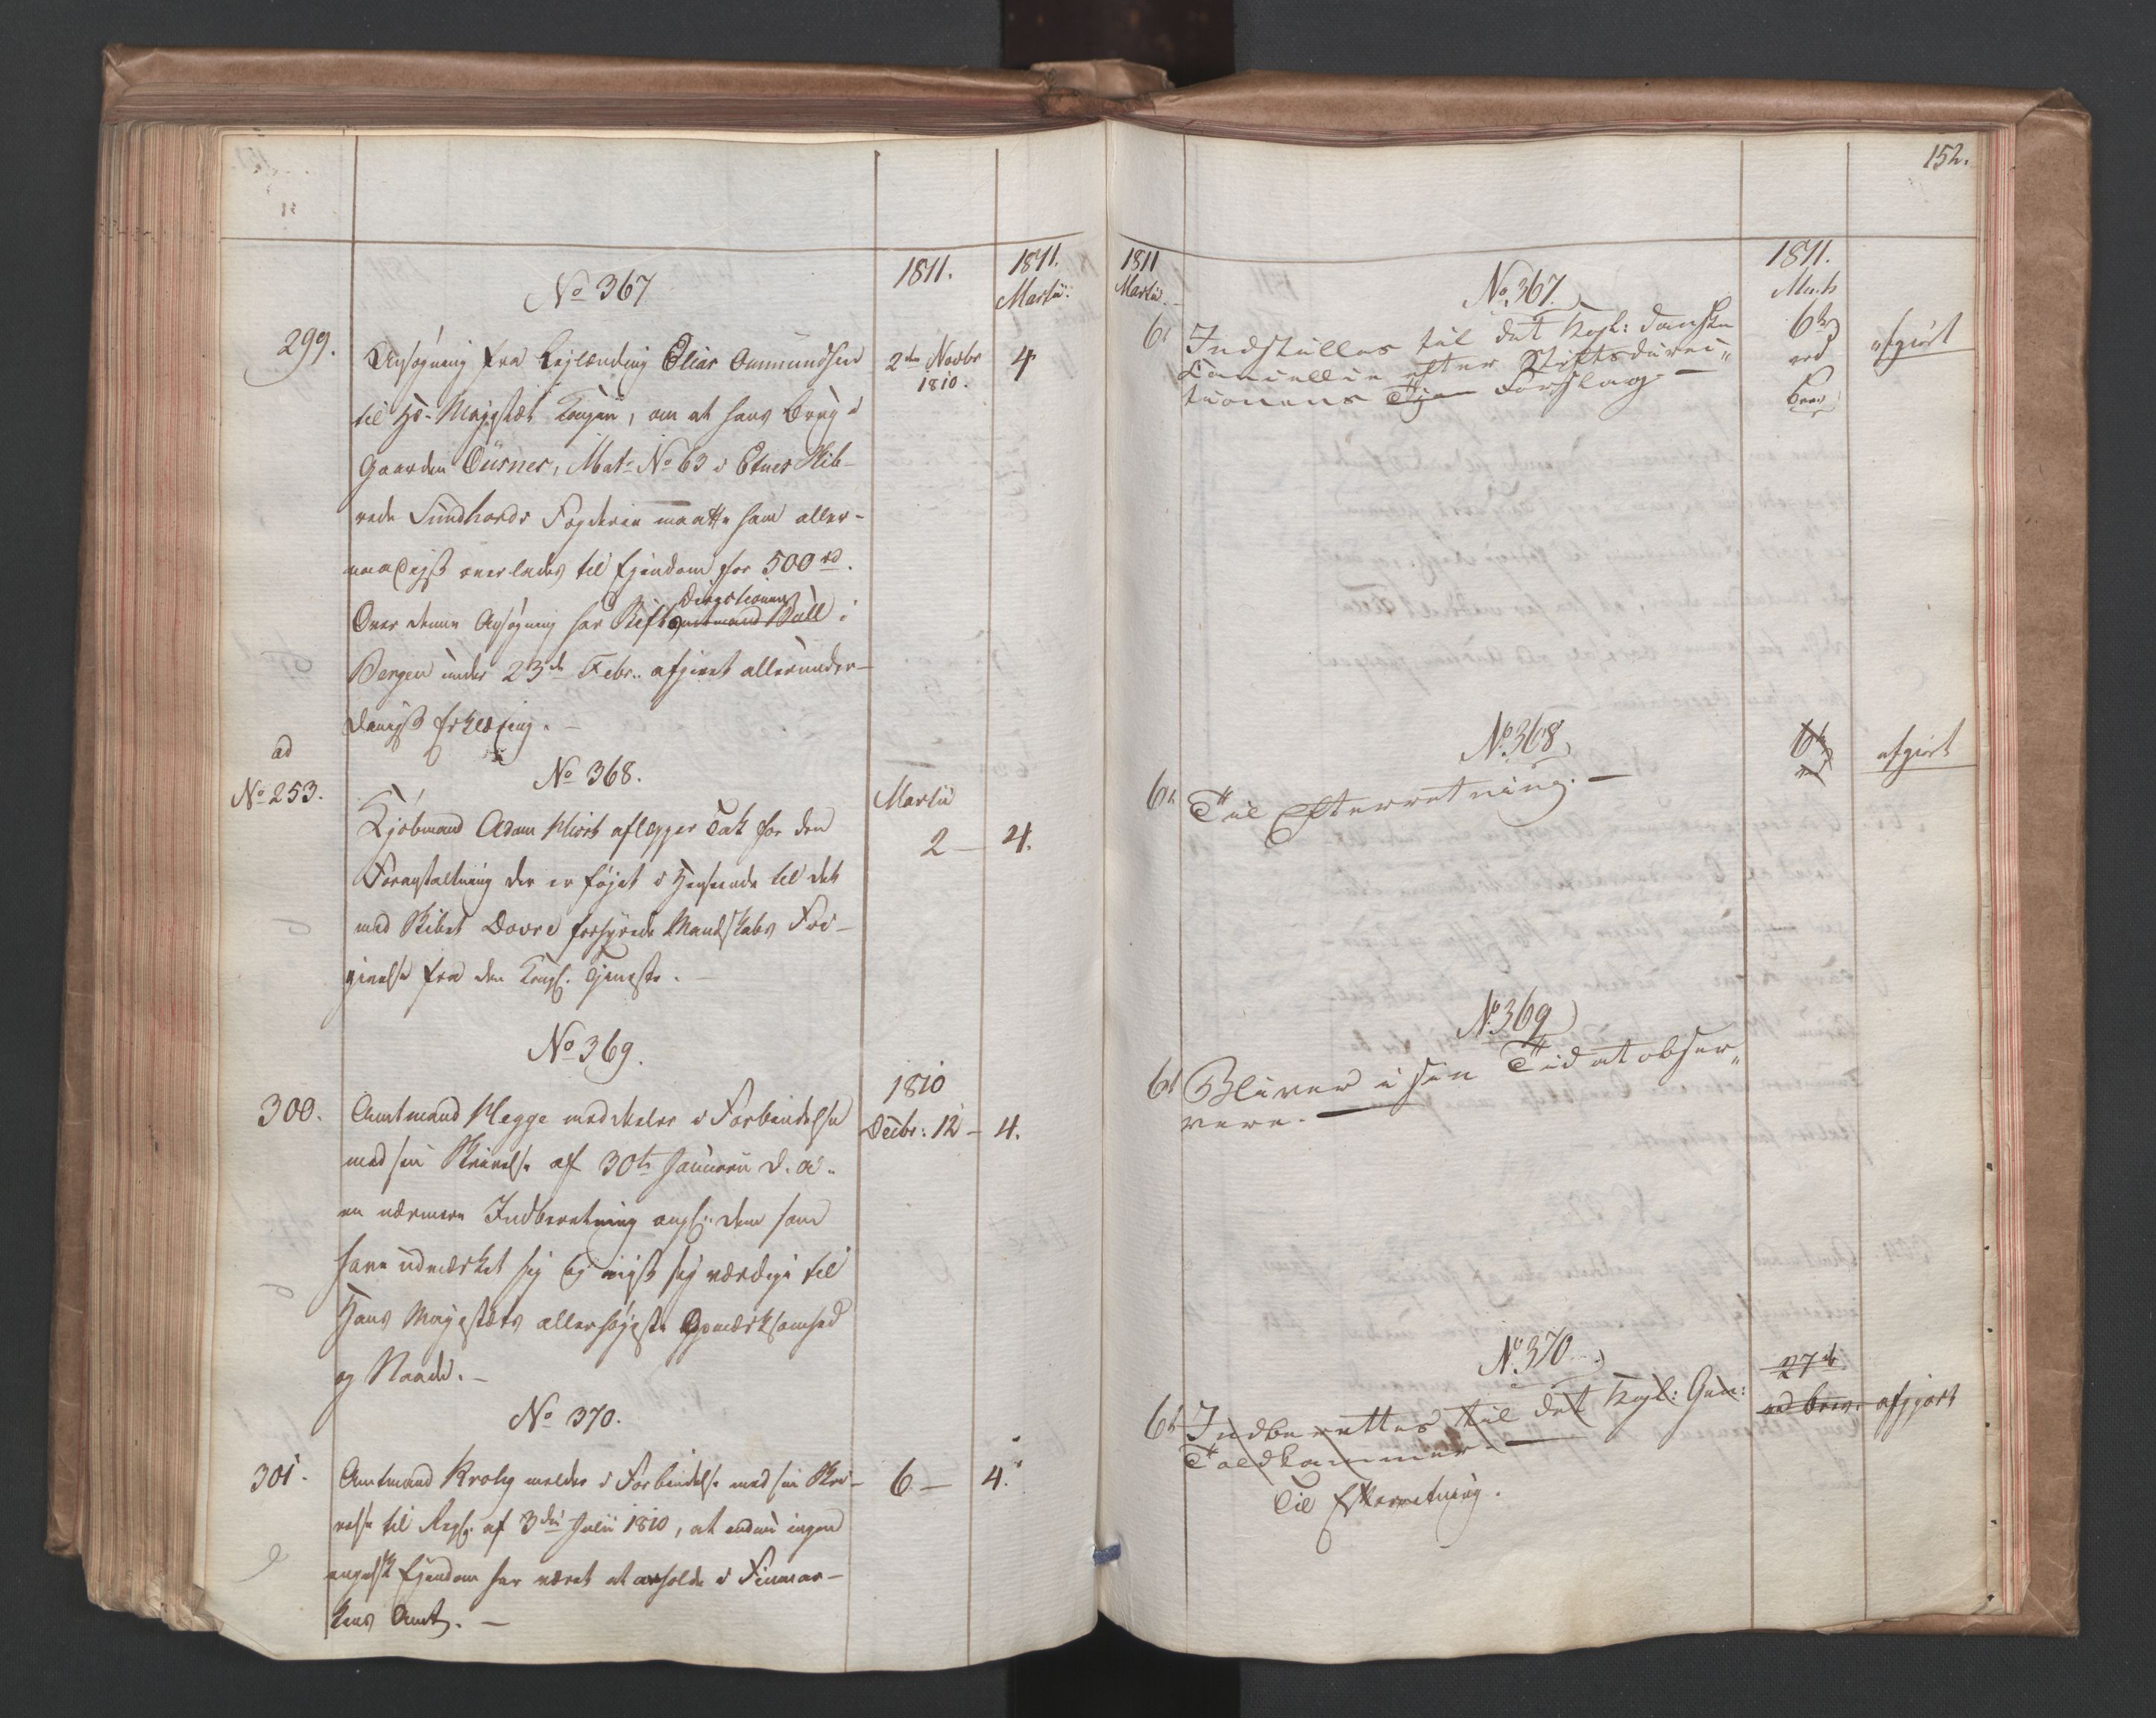 1811.
1811.
Martii
No 367
299.
Ansøgning fra Lejlænding Elias Ommundsen
til Hs. Majestæt Kongen, om at hans Brug i
Gaarden Øusner, Mat. No 63 i Etnes Skib-
rede Sundhords Fogderie maatte ham aller-
naadigst overlades til Ejendom for 500 rd.
Over denne Ansøgning har Stiftsamtmand Bull i
Directionen
Bergen under 23de Febr. afgivet allerunder-
danigst Erklæring. -
2den Novbr
1810.
4
ad
No 253.
No 368.
Kjøbmand Adam aflægger Tak for den
Foranstaltning der er føjet i Henseende til det
med Skibet Dovre forhyrede Mandskabs Fri-
givelse fra den Kongl. Tjeneste. -
Martii
2 - 4.
No 369.
300.
Amtmand Hegge meddeler i Forbindelse
med sin Skrivelse af 30te Januarii d. a.
en nærmere Indberetning angl. dem som
have udmærket sig og viist sig værdige til
Hans Majestæts allerhøjeste Opmærksomhed
og Naade. -
1810
Decbr: 12 - 4.
No 370.
301.
Amtmand Krogh melder i Forbindelse med sin Skri-
velse til Regj. af 3die Julii 1810, at endnu ingen
engelsk Ejendom har været at anholde i Finmar-
kens Amt. -
6 - 4.
152.
1811
Martii
1811.
Marts
No 367.
6t
Indstilles til det Kgl: danske
Cancellie efter Stiftsdirec"
tionens Forslag. -
6te
ved
Brev
afgiort
No 368
6t
Til Efterretning. -
6te
ved
afgiort
No 369
6t
Bliver i sin Tid at obser"
vere. -
No 370
6t
Indberettes til det Kgl: Gen:
Toldkammer. -
Til Efterretning.
27de
ved brev
afgjort